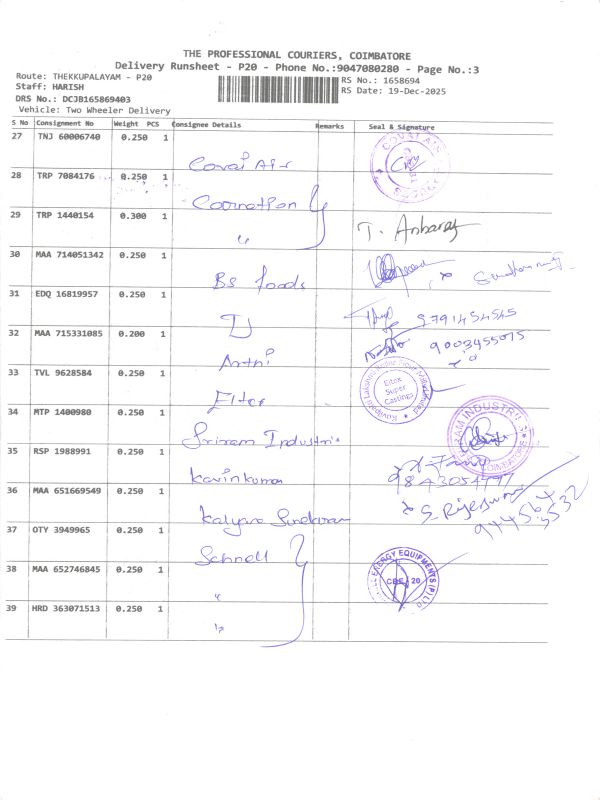 THE PROFESSIONAL COURIERS, COIMBATORE
Delivery Runsheet - P20 - Phone No.:9047080280 - Page No.:3
Route: THEKKUPALAYAM - P20
Staff: HARISH
DRS No.: DCJB165869403
Vehicle: Two Wheeler Delivery
RS No.: 1658694
RS Date: 19-Dec-2025
S No Consignment No Weight PCS Consignee Details Remarks Seal & Signature
27 TNJ 60006740 0.250 1 Covai Air
28 TRP 7084176 0.250 1 Coornation
29 TRP 1440154 0.300 1 " T. Anbaraj
30 MAA 714051342 0.250 1 BS foods
31 EDQ 16819957 0.250 1 9791454545
32 MAA 715331085 0.200 1 Arthi 9003455015
33 TVL 9628584 0.250 1 Eltex Eltex Super Castings
34 MTP 1400980 0.250 1 Sriram Industris
35 RSP 1988991 0.250 1 Kavinkumar
36 MAA 651669549 0.250 1 Kalyana Sundaram
37 OTY 3949965 0.250 1 Schnell ENERGY EQUIPMENTS (P) LTD CBE 20
38 MAA 652746845 0.250 1 "
39 HRD 363071513 0.250 1 "